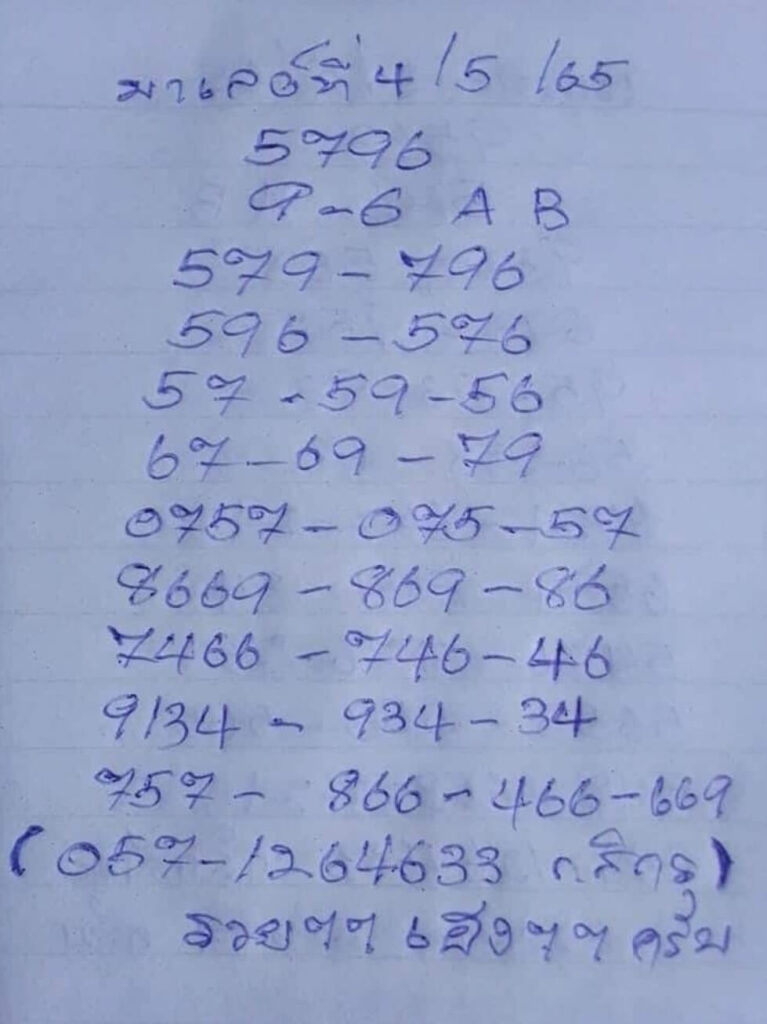 มาเลย์ที่ 4/5/65
5796
9-6 A B
579-796
596-576
57-59-56
67-69-79
0757-075-57
8669-869-86
7466-746-46
9134-934-34
757-866-466-669
(057-1264633 ก.สิกร)
รวยๆๆ เฮงๆๆ ครับ